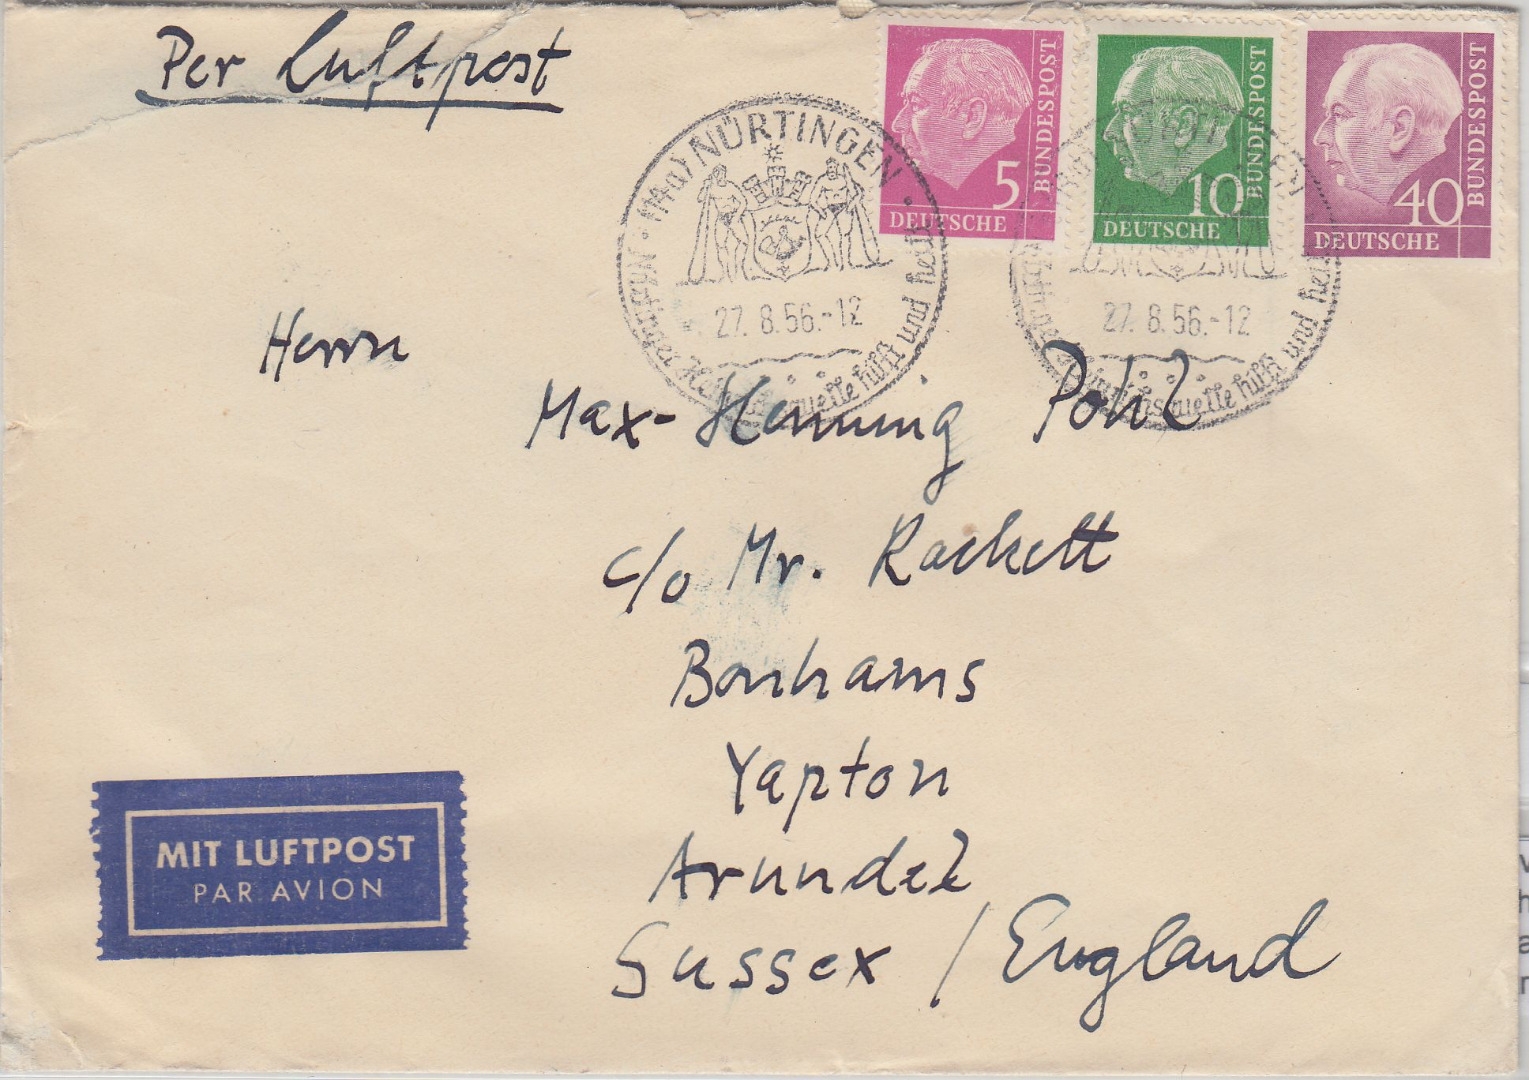 Per Luftpost
5
DEUTSCHE
BUNDESPOST
10
DEUTSCHE
BUNDESPOST
40
DEUTSCHE
BUNDESPOST
(14a) NÜRTINGEN
27.8.56.-12
quelle hilft und heilt
27.8.56.-12
quelle hilft und
Herrn
Max-Henning Pohl
c/o Mr. Rackett
Bonhams
Yapton
Arundel
Sussex / England
MIT LUFTPOST
PAR AVION